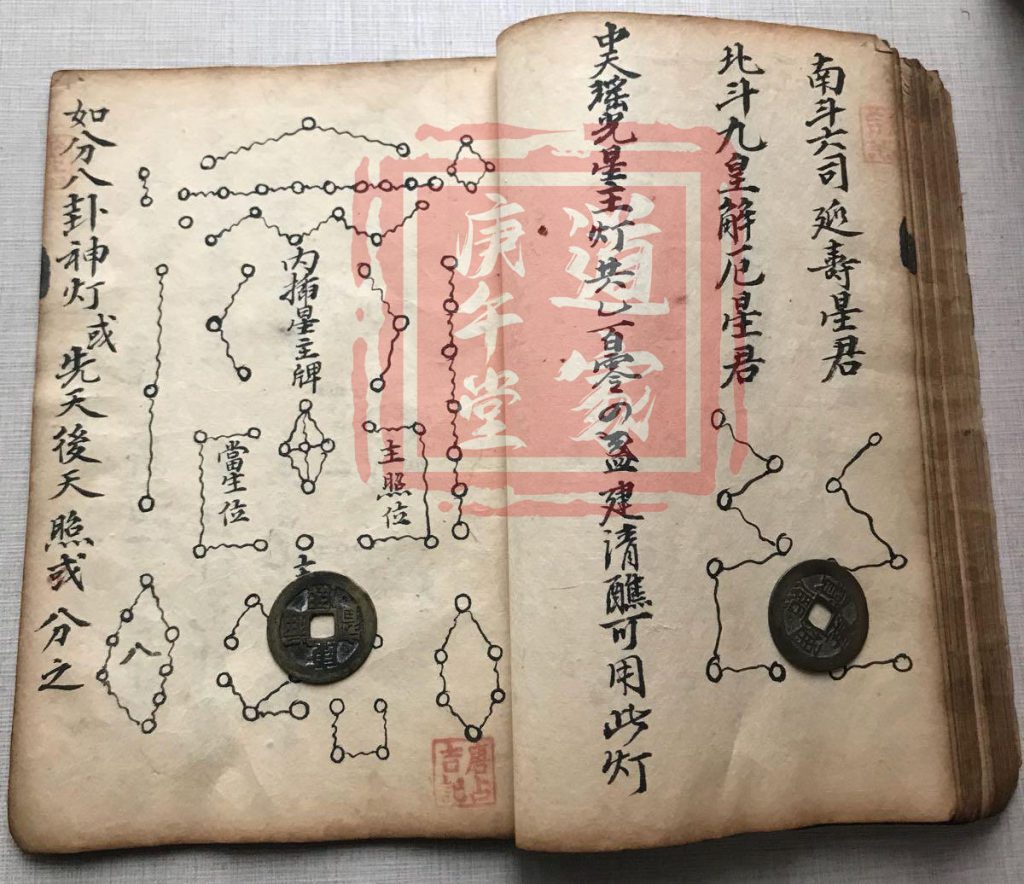 南斗六司 延壽星君
北斗九皇解厄星君
中天瑶光星王灯共乚百零の盏建清醮可用此灯
内插星主牌
主照位
當生位
八
如分八卦神灯或先天後天照或分之
道家
庚午堂
吉記